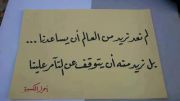 لم نعد نريد من العالم أن يساعدنا ...
بل نريد منه أن يتوقف عن التآمر علينا